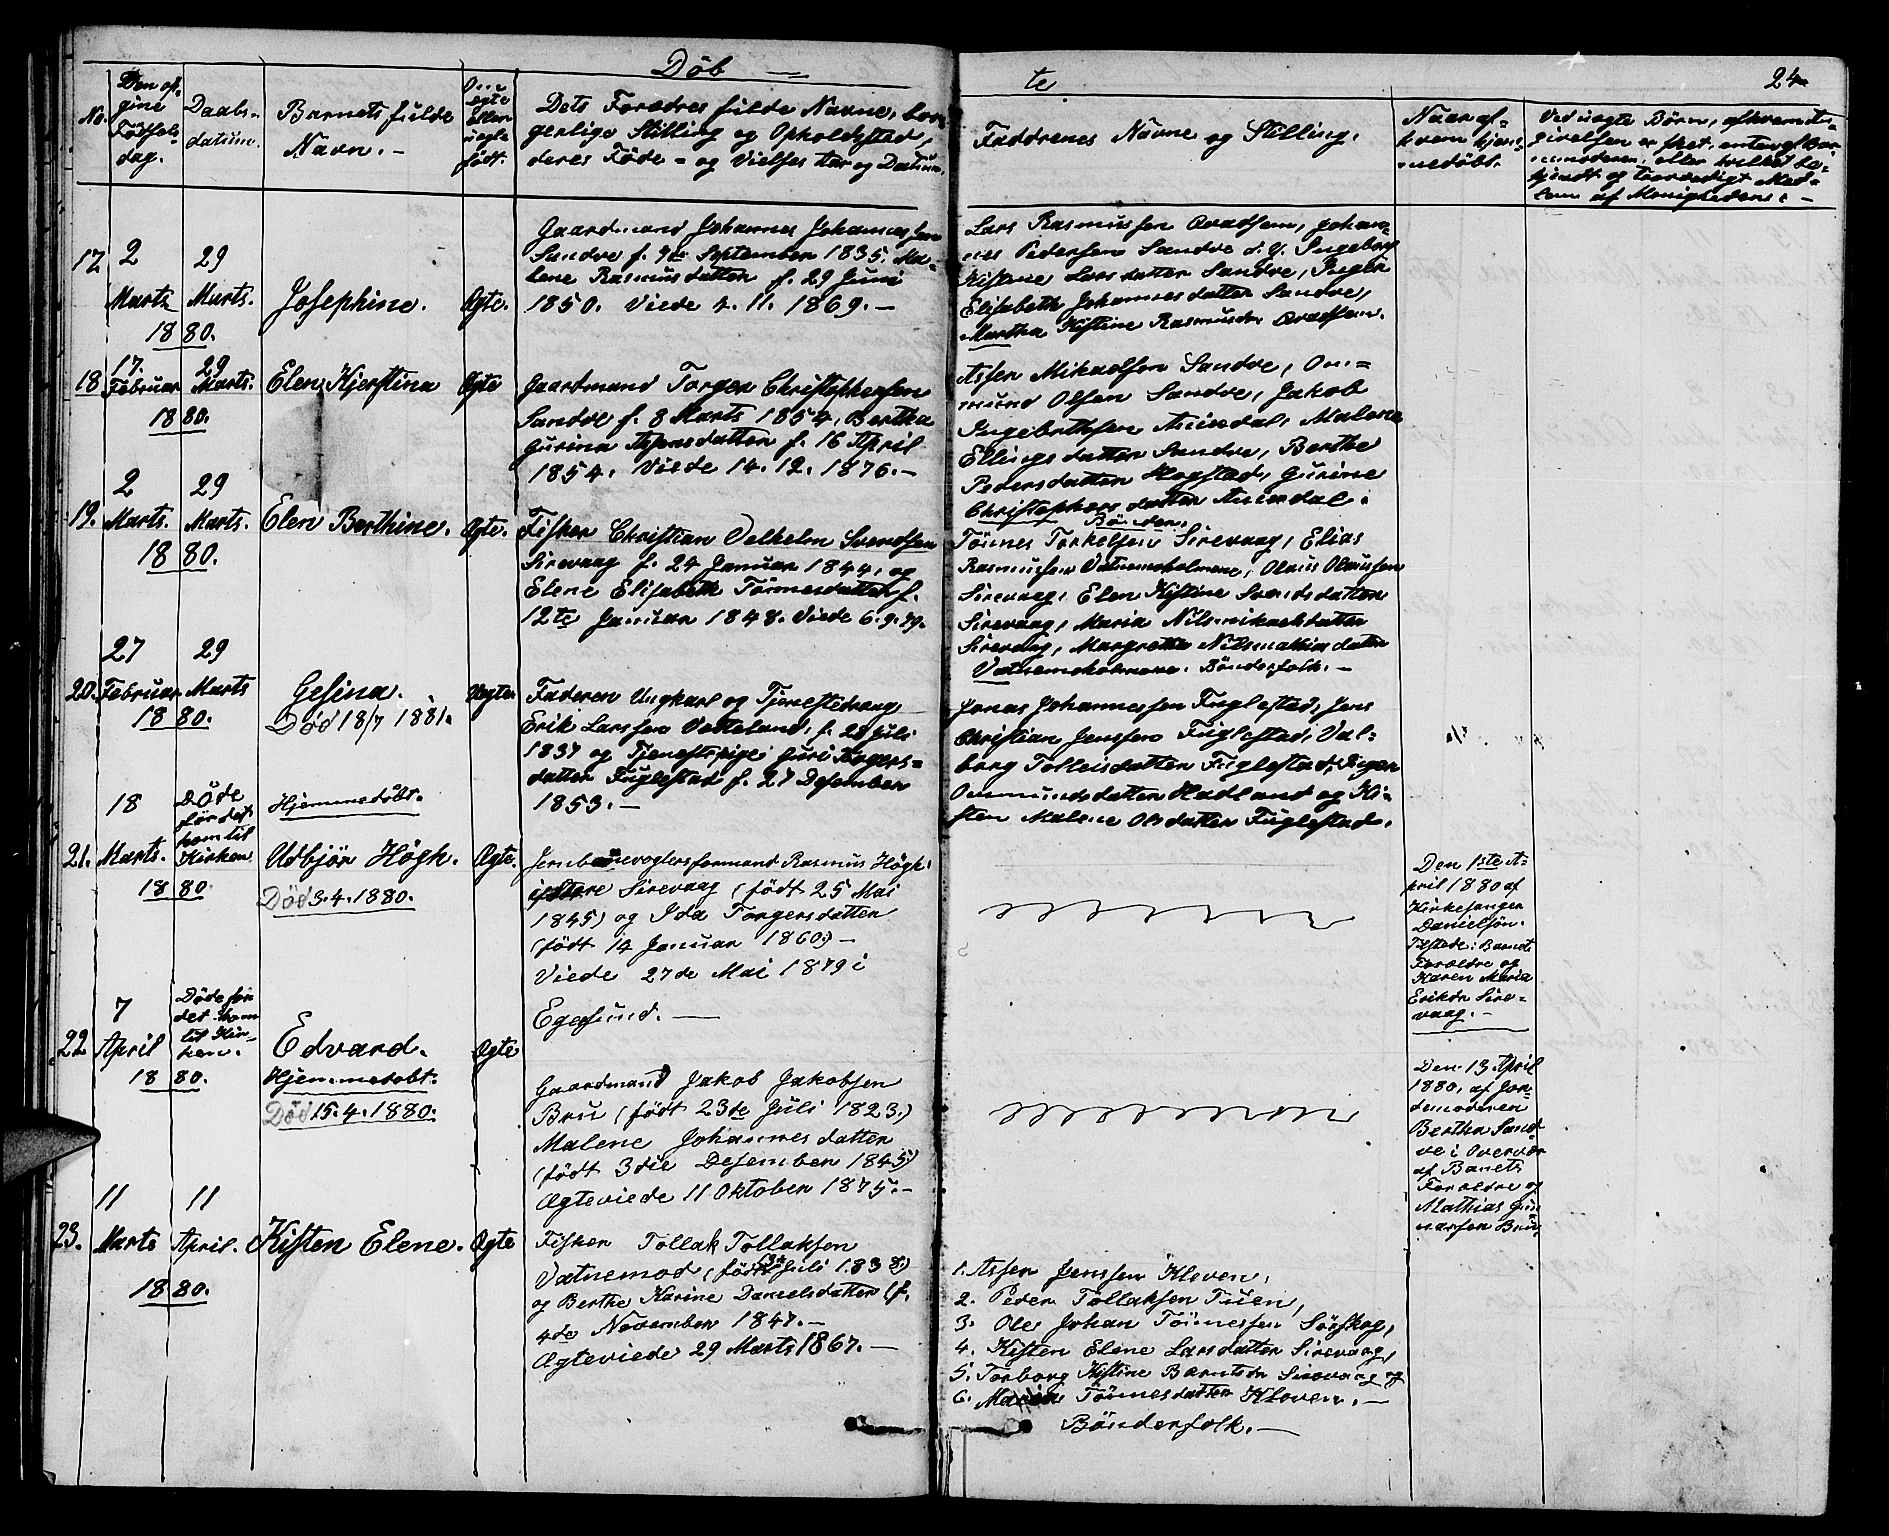 Döb — te
24
No.
Den opgivne Fødselsdag.
Daabsdatum.
Barnets fulde Navn. —
ægte eller uægte født.
Dets Forældres fulde Navne, borgerlige Stilling og Opholdssted, deres Føde = og Vielses Aar og Datum.
Faddrenes Navne og Stilling.
Naar af hvem hjemmedøbt.
Ved uægte Børn, af hvem Angivelsen er sket, enten af Barnemoderen, eller hvilket bekjendt og troværdigt Medlem af Menigheden: —
17.
2 Marts 1880.
29 Marts.
Josephine.
Ægte.
Gaardmand Johannes Johannessen
Sandve f. 9de September 1835. Ma-
lene Rasmusdatter f. 29 Juni
1850. Viede 4. 11. 1869. —
Lars Rasmussen Qvadsem, Johan-
nes Pedersen Sandve d. y. Ingeborg
Kistine Larsdatter Sandve, Inger
Elisabeth Johannesdatter Sandve,
Martha Kistine Rasmusdr Qvadsem.
18
17. Februar 1880.
29 Marts.
Elen Kjerstina
Ægte
Gaardmand Torger Christophersen
Sandve f. 8 Marts 1854, Bertha
Gurina Assersdatter f. 16 April
1854. Viede 14. 12. 1876. —
Asser Mikaelsen Sandve, Om=
mund Olsen Sandve, Jakob
Ingebrethsen Auindal, Malene
Ellingsdatter Sandve, Berthe
Pedersdatter Hogstad, Gurine
Christophersdatter Auindal.
Bönder.
19.
2 Marts. 1880.
29 Marts.
Elen Berthine.
Ægte.
Fisker Christian Velhelm Svendsen
Sirevaag f. 24 Januar 1844, og
Elene Elisabeth Tönnesdatter f.
12te Januar 1848. Viede 6. 9. 79.
Tönnes Torkelsen Sirevaag, Elias
Rasmussen Vatnemoholmene, Olaus Olaussen
Sirevaag, Elen Kistine Svendsdatter
Sirevaag, Maria Nilsmikaelsdatter
Sirevaag, Margrethe Nilsmathiasdatter
Vatnemoholmene. Bönderfolk. —
20.
27 Februar 1880.
29 Marts
Gesina.
Död 18/7 1881.
Uægte
Faderen Ungkarl og Tjenestedreng
Erik Larssen Vetteland, f. 28 Juli
1837 og Tjenestepige Guri Torgers=
datter Fuglestad f. 27 Desember
1853. —
Jonas Johannessen Fuglestad, Jens
Christian Jenssen Fuglestad, Val-
borg Tolleisdatter Fuglestad, Inger
Ommundsdatter Hadland og Ki-
sten Malene Olsdatter Fuglestad.
21.
18 Marts. 1880.
Döde
för det
kom til
Kirken.
Hjemmedöbt.
Udbjör Högh.
Död 3. 4. 1880.
Ægte.
Jernbanevogtersformand Rasmus Högh
Sirevaag (född 25 Mai
1845) og Ida Torgersdatter
(födt 14 Januar 1860) —
Viede 27de Mai 1879 i
Egersund. —
Den 1ste A-
pril 1880 af
Kirkesanger
Danielsön.
Tilstede: Barnets
Forældre og
Karen Maria
Eriksdr Sire-
vaag. —
22
7 April 1880.
Döde för
det kom
til Kir-
ken.
Edvard.
Hjemmedöbt.
Död 15. 4. 1880.
Ægte
Gaardmand Jakob Jakobsen
Bru (födt 23de Juli 1823.)
Malene Johannesdatter
(födt 3die Desember 1845)
Ægteviede 11 Oktober 1875. —
Den 13 April
1880, af Jor-
demoderen
Berthe Sand-
ve i Overvær
af Barnets
Forældre og
Mathias Gun-
narsen Bru.
23.
11 Marts 1880.
11 April.
Kisten Elene.
Ægte
Fisker Tollak Tollaksen
Vatnemod, (födt Juli 1838.)
og Berthe Karine Danielsdatter (f.
4de November 1847. —
Ægteviede 29 Marts 1867. —
1. Asser Jenssen Kloven,
2. Peder Tollaksen Tuen,
3. Ole Johan Tönnessen Sörskog,
4. Kisten Elene Larsdatter Sirevaag,
5. Torborg Kistine Berntsdr Sirevaag og
6. Maria Tönnesdatter Kloven. —
Bönderfolk. —